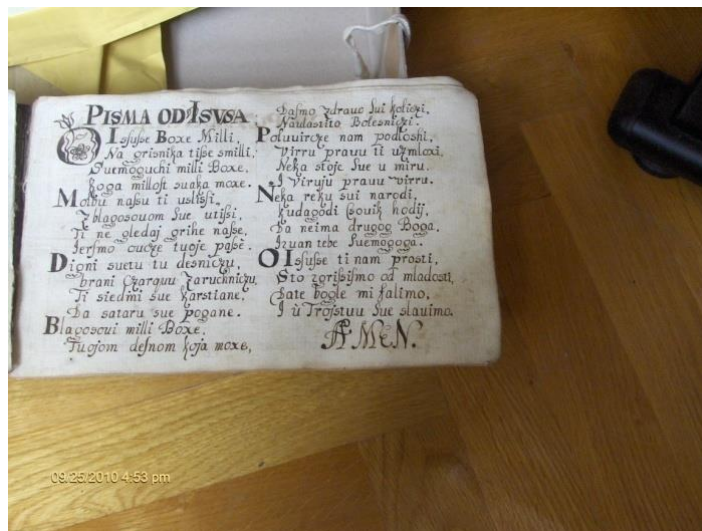 PISMA OD ISUSA
O Isfusse Boxe Milli,
Na grisnika tisse smilli,
Suemoguchi milli Boxe,
koga millost suaka moxe.
Molbu nassu ti uslissi,
Zblagosouom sue utissi,
Ti ne gledaj grihe nasse,
Jersmo oucze tuoje passe.
Digni suetu tu desniczu,
brani Czarquu Zaruchniczu,
Ti siedmi sue karstiane,
Da sataru sue pogane.
Blagosoui milli Boxe,
Tuojom desnom koja moxe,
Dasmo zdrauo sui koliczi,
Nardastito Bolesniczi.
Poluuircze nam podloshi,
Virru prauu ti uzmloxi,
Neka stoje sue u miru.
I Viruju prauu Virru.
Neka reku sui narodi,
kudagodi Csouik hodij,
Da neima drugog Boga,
Izuan tebe Suemogoga.
O Isfusse ti nam prosti,
Sto zgrissismo od mladosti,
Date bogle mi falimo,
I u Trojstuu sue slauimo.
AMEN.
09/25/2010 4:53 pm